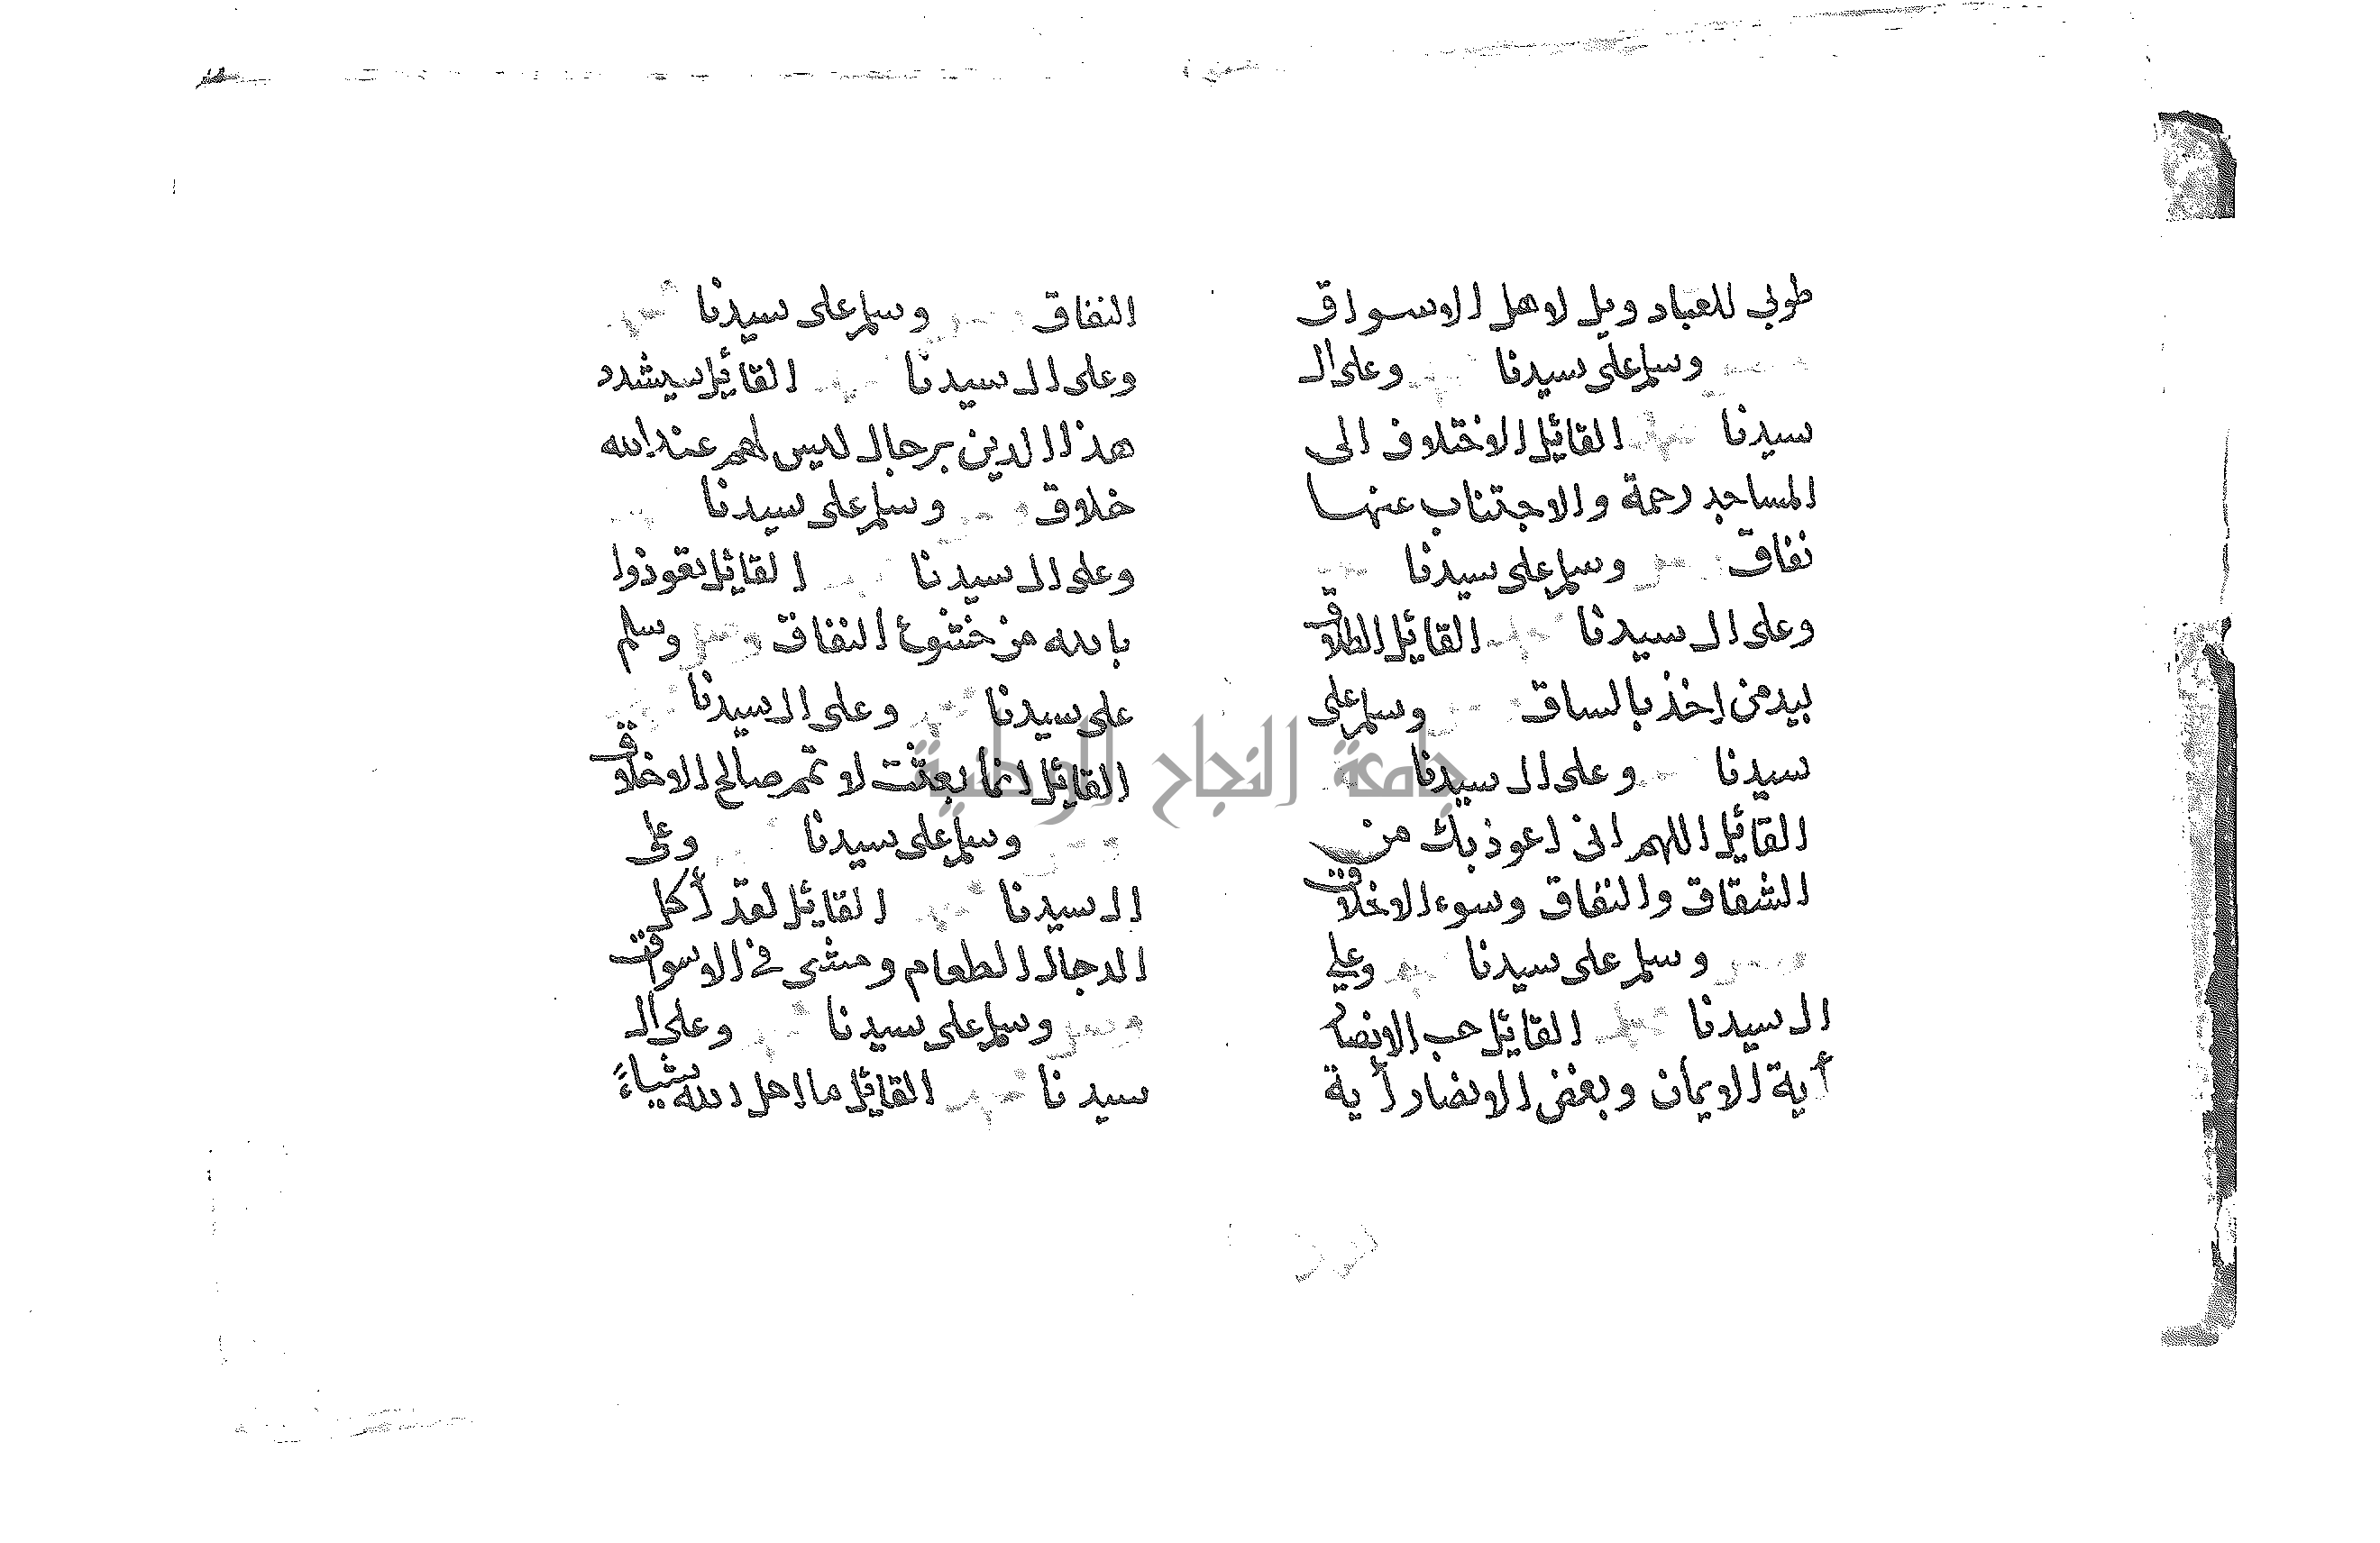 طوبي للعباد ويل لاهل الاسواق
وسلم على سيدنا وعلى ال
سيدنا القائل الاختلاف الى
المساجد رحمة والاجتناب عنها
نفاق وسلم على سيدنا
وعلى ال سيدنا القائل الطلاق
بيد من اخذ بالساق وسلم على
سيدنا وعلى ال سيدنا
القائل اللهم انى اعوذ بك من
الشقاق والنفاق وسوء الاخلاق
وسلم على سيدنا وعلي
ال سيدنا القائل حب الانصار
أية الايمان وبغض الانصار أية
النفاق وسلم على سيدنا
وعلى ال سيدنا القائل سيشدد
هذا الدين برجال ليس لهم عند الله
خلاق وسلم على سيدنا
وعلى ال سيدنا القائل تعوذوا
بالله من خشوع النفاق وسلم
على سيدنا وعلى ال سيدنا
القائل انما بعثت لاتمم صالح الاخلاق
وسلم على سيدنا وعلى
ال سيدنا القائل لقد أكل
الدجال الطعام ومشى في الاسواق
وسلم على سيدنا وعلى ال
سيدنا القائل ما احل الله شياءً
جامعة النجاح الوطنية